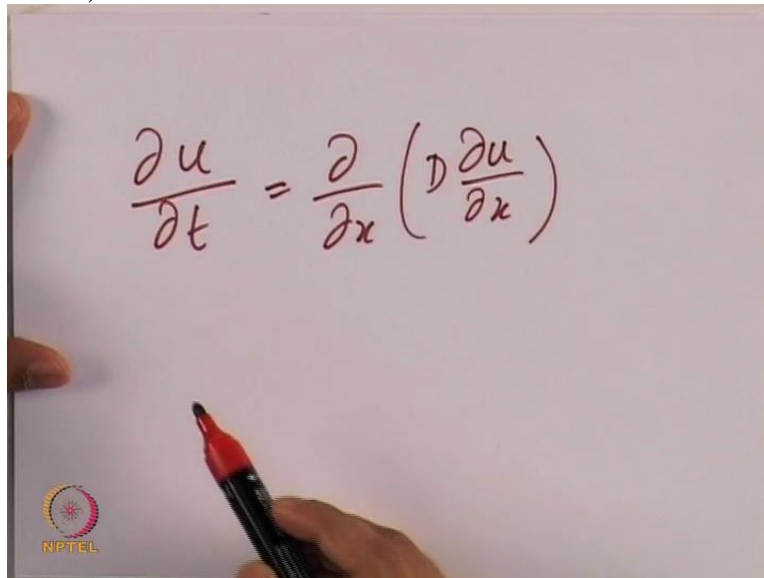 )
∂u/∂t = ∂/∂x (D ∂u/∂x)
NPTEL